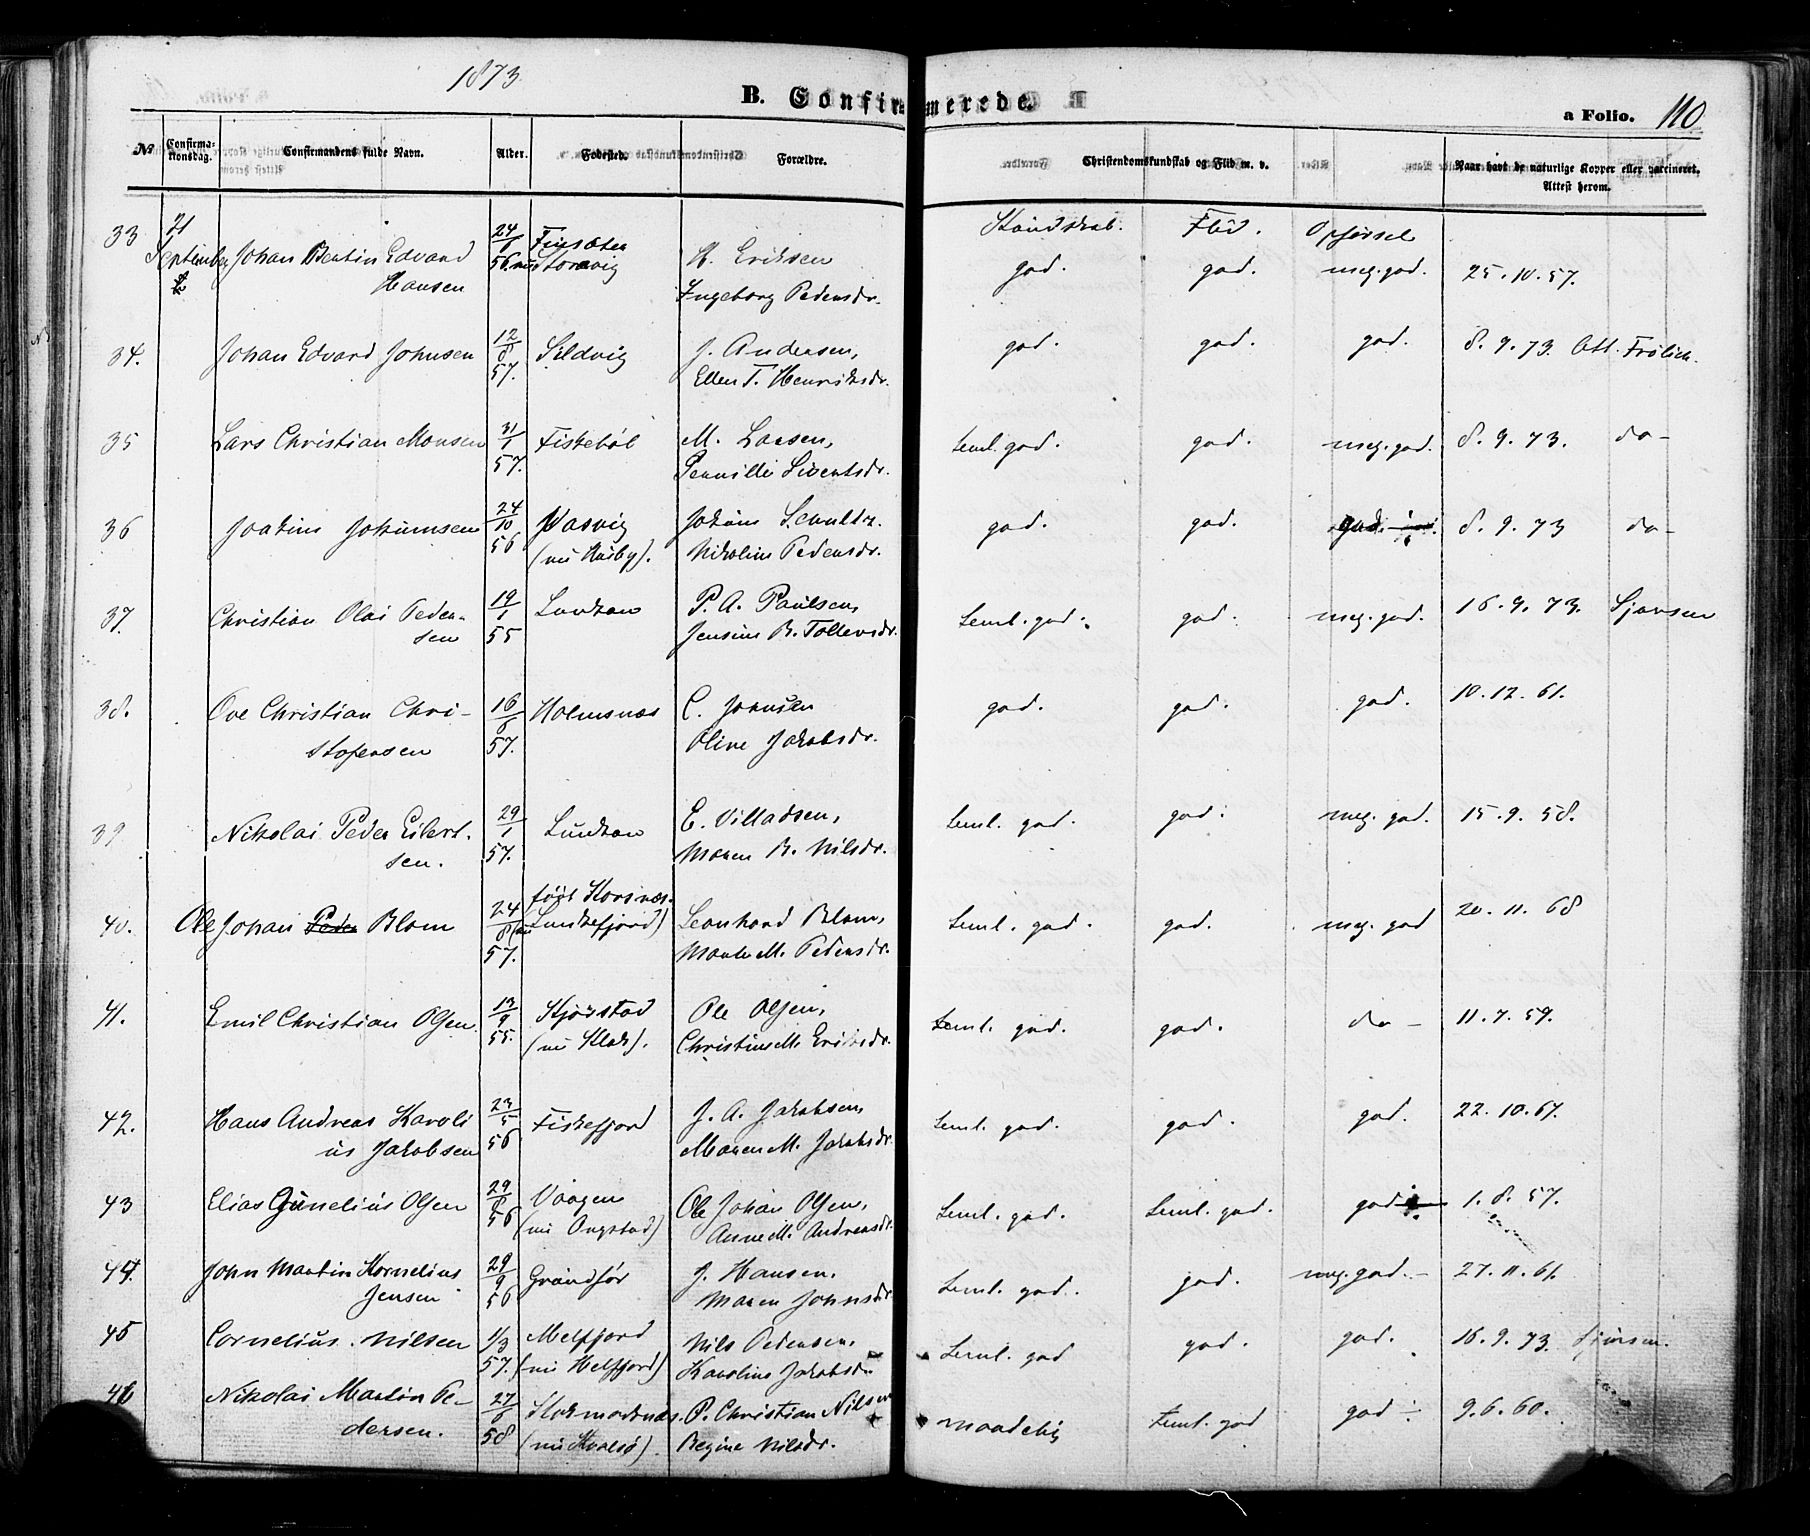 1873.
B. Confirmerede.
a Folio. 110
No Confirmationsdag. Confirmandens fulde Navn. Alder. Fødested. Forældre. Christendomskundskab og Flid m. v. Naar havt de naturlige Kopper eller vaccineret. Attest herom.
Kundskab. Flid. Opførsel
33 21 September Johan Bertin Edvard Hansen 24/6 56. Finsæter nu Storevig H. Eriksen Ingeborg Pedersdr. god. god. meg. god. 25.10.57.
34. Johan Edvard Johnsen 12/8 57. Sildvig J. Andersen, Ellen T. Henriksdr. god. god. god. 8.9.73. Att. Frölich.
35 Lars Christian Monsen 31/1 57. Fiskebøl M. Larsen, Pernille Sivertsdr. Teml. god. god. meg. god. 8.9.73. do-
36 Joakim Jokumsen 24/10 56 Hasvig (nu Husby). Jokum Schultz. Nikoline Pedersdr. god. god. god. 8.9.73 do-
37. Christian Olai Pedersen 19/1 55 Lunkan P. A. Paulsen, Jensine B. Tollevsdr. Teml. god. god. meg. god. 16.9.73. Sjønsen
38. Ove Christian Christofersen 16/6 57. Holmsnæs C. Jonsen Oline Jakobsdr. god. god. god. 10.12.61.
39. Nikolai Peder Eilertsen. 29/1 57. Lunkan E. Villadsen, Maren B. Nilsdr. Teml. god. god. meg. god. 15.9.58.
40. Ole Johan Peder Blom 24/8 57. født Korsnæs. (nu Lunkefjord) Leonhard Blom, Marte M. Pedersdr. Teml. god. god. meg. god 20.11.68
41. Emil Christian Olsen. 13/9 55. Skjørstad (nu Klak). Ole Olsen, Christine M. Eriksdr. Teml. god. god. do- 11.7.59.
42. Hans Andreas Karolius Jakobsen 23/5 56 Fiskefjord J. A. Jakobsen, Maren M. Jakobsdr. Teml. god. god. god. 22.10.67.
43 Elias Gunelius Olsen 29/8 56 Vaagen (nu Ongstad) Ole Johan Olsen, Anne M. Andreasdr. Teml. god. Teml. god. god 1.8.57.
44. John Martin Kornelius Jensen 29/9 56 Grundfør J. Hansen, Maren Johnsdr. Teml. god. god. meg. god.- 27.11.61.
45 Cornelius Nilsen 1/3 57. Melfjord (nu Melfjord) Nils Pedersen, Karoline Jakobsdr. Teml. god god. god. 16.9.73. Sjønsen.
46 Nikolai Martin Pedersen. 27/6 58 Stokmarknæs. (nu Kvalsø). P. Christian Nilsen Regine Nilsdr. maadelig Teml. god god 9.6.60.